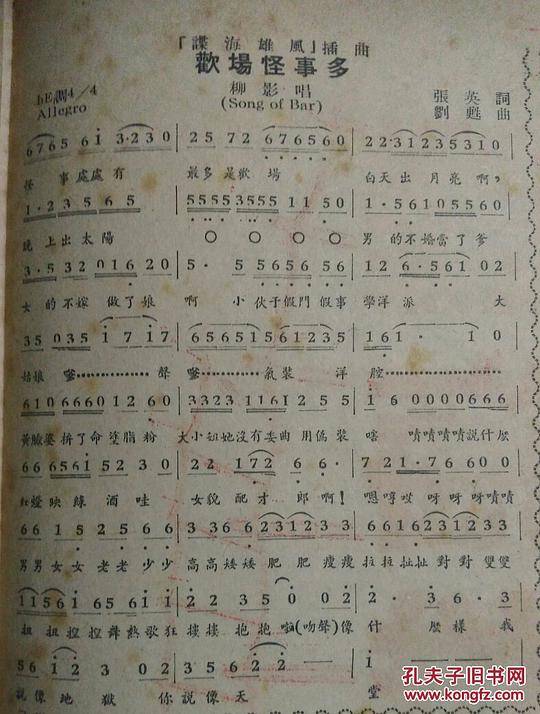 「諜海雄風」插曲
歡場怪事多
柳影唱
(Song of Bar)
bE調4/4
Allegro
張英詞
劉甦曲
6765 61 3·230 25 72 676560 22·31235310
怪 事處處有 最多是歡場 白天出月亮啊，
1·2 3 5 6 5 5555 5555 11 50 1·561 05560
晚上出太陽 〇 〇 〇 〇 男的不婚當了爹
3·5 32 01620 5· 5 565 656 12 6·561 02
女的不嫁做了娘 啊 小伙子假門假事 學洋派 大
35 035 1717 656515615156 161· 1·0
姑娘爹………聲爹………氣裝洋腔………
610 6660 1260 3323 1161 255 1 6 0000666
黃臉婆拚了命塗脂粉 大小姐她沒有委曲用偽裝 嗐 嘖嘖嘖嘖說什麼
66 6561 5230 22 172 66· 721·76600
紅燈映綠酒哇 女貌配才郎啊！ 呀呀呀嘖嘖
66 1 5 2 5 6 6 3 3 6 6 231233 66 1 6 231233
男男女女老老少少 高高矮矮肥肥瘦瘦 拉拉扯扯對對雙雙
11561 65 61 1 2 2 3 5 0 0 2 2 3·6·3
扭扭捏捏舞熱歌狂 摟摟抱抱啦(吻聲)像什麼樣 我
5 6 1 2 3 0 2 3 0 2 1 — 1 —
說像地獄 你說像天堂
孔夫子旧书网
www.kongfz.com